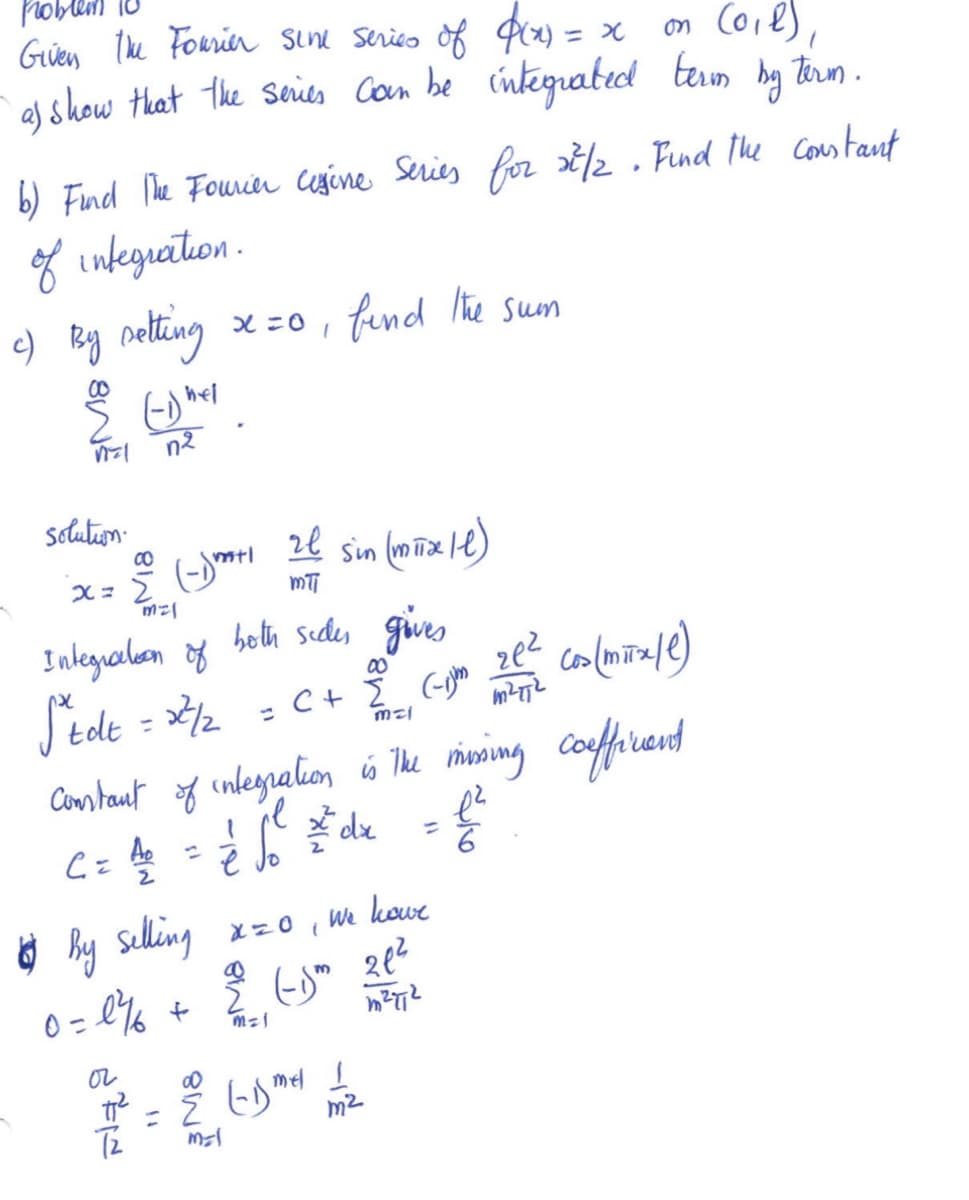 Problem 10
Given The Fourier sine series of ϕ(x) = x on (0, ℓ),
a) Show that the series can be integrated term by term.
b) Find The Fourier cosine Series for x²/2. Find the constant
of integration.
c) By setting x = 0, find the sum
∑_{n=1}^{∞} (-1)^{n+1}/n² .
solution.
x = ∑_{m=1}^{∞} (-1)^{m+1} 2ℓ/mπ sin (mπx/ℓ)
Integration of both sides gives
∫^x t dt = x²/2 = C + ∑_{m=1}^{∞} (-1)^m 2ℓ²/m²π² cos(mπx/ℓ)
Constant of integration is the missing coefficient
C = A₀/2 = 1/ℓ ∫_0^ℓ x²/2 dx = ℓ²/6 .
By setting x = 0, we have
0 = ℓ²/6 + ∑_{m=1}^{∞} (-1)^m 2ℓ²/m²π²
or
π²/12 = ∑_{m=1}^{∞} (-1)^{m+1} 1/m²